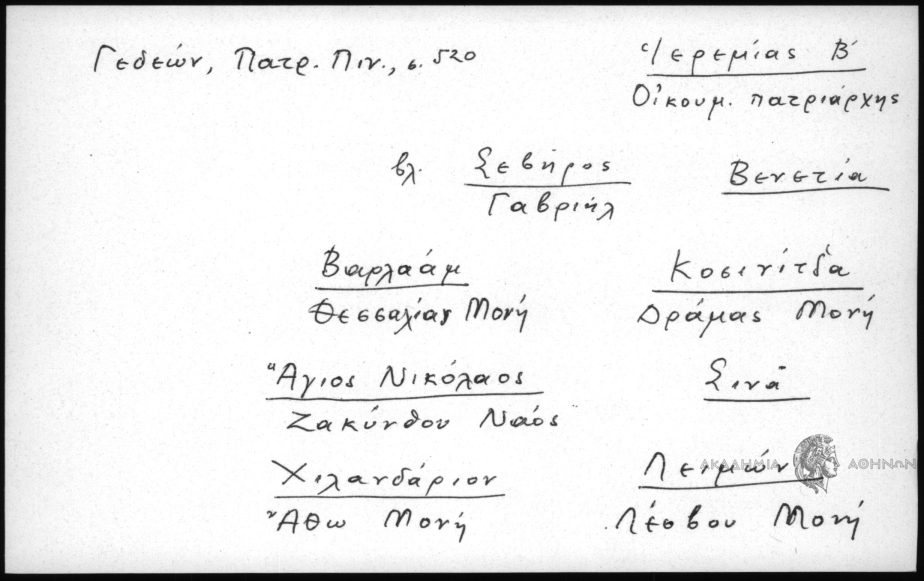 Γεδεών, Πατρ. Πιν., σ. 520
Ἱερεμίας Β΄
Οἰκουμ. πατριάρχης
βλ. Σεβῆρος Βενετία
Γαβριήλ
Βαρλαάμ Κοσινίτσα
Θεσσαλίας Μονή Δράμας Μονή
Ἅγιος Νικόλαος Σινᾶ
Ζακύνθου Ναός
Χιλανδάριον Λειμών
Ἄθω Μονή Λέσβου Μονή
ΑΚΑΔΗΜΙΑ ΑΘΗΝΩΝ